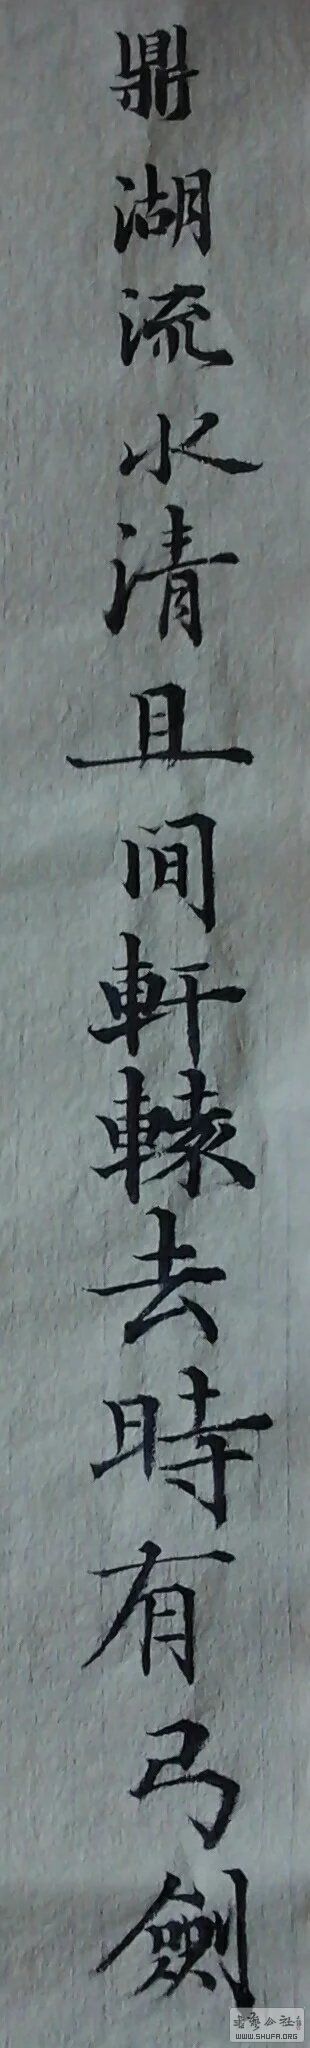 鼎湖流水清且间軒轅去時有弓劍
WWW.SHUFA.ORG